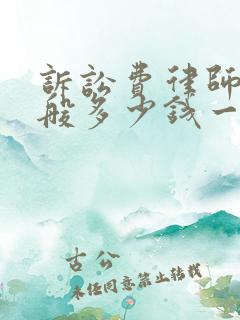 訴訟費律師
般多少錢一
古公
未經同意禁止轉載